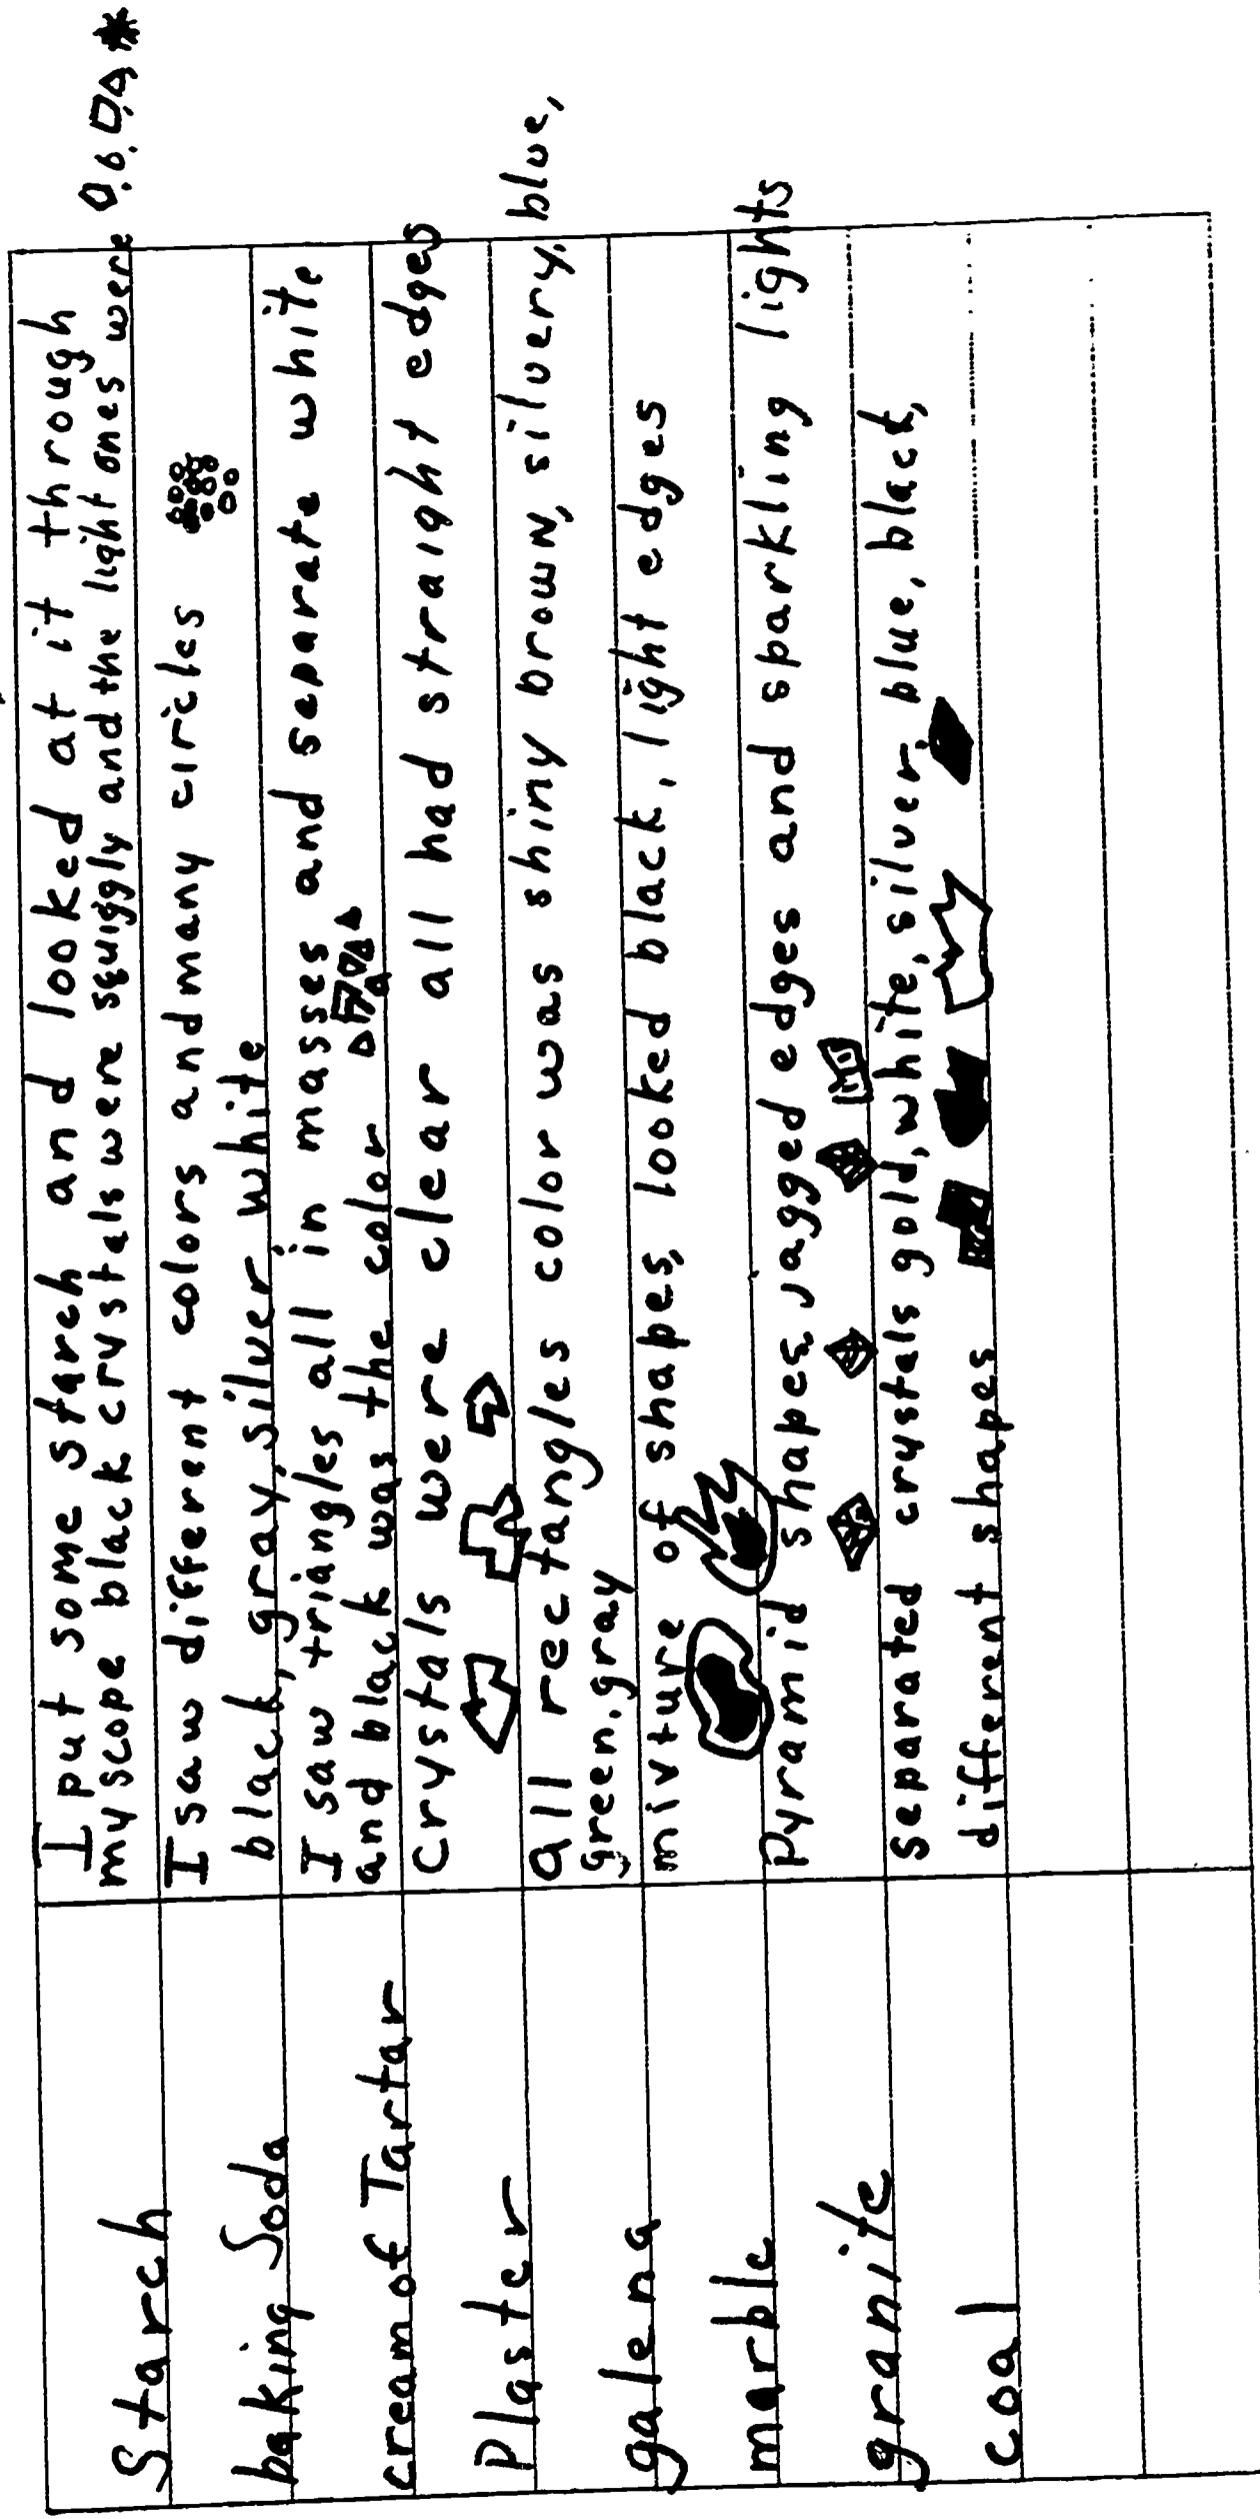 Starch
I put some starch and looked at it through
my scope black crystals were squiggly and the light ones were
baking Soda
I saw different colors and many circles
black, gray, silver white
cream of Tartar
I saw triangles all in masses and separate white
and black was the color
Plaster
crystals were clear all had straight edges
galena
all rectangles color was shiny brown, silvery, blue,
green, gray
marble
mixture of shapes, looked black, light edges
granite
Pyramid shapes, jagged edges and sparkling lights
coal
Separated crystals gold, white, silver, blue, black,
different shapes